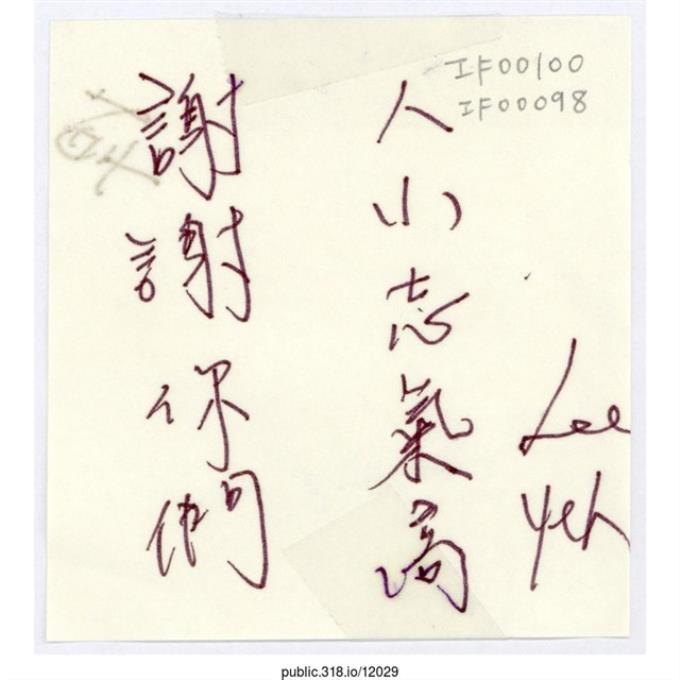 IF00100
IF00098
Lee
Yeh
人小志氣高
謝謝你們
public.318.io/12029